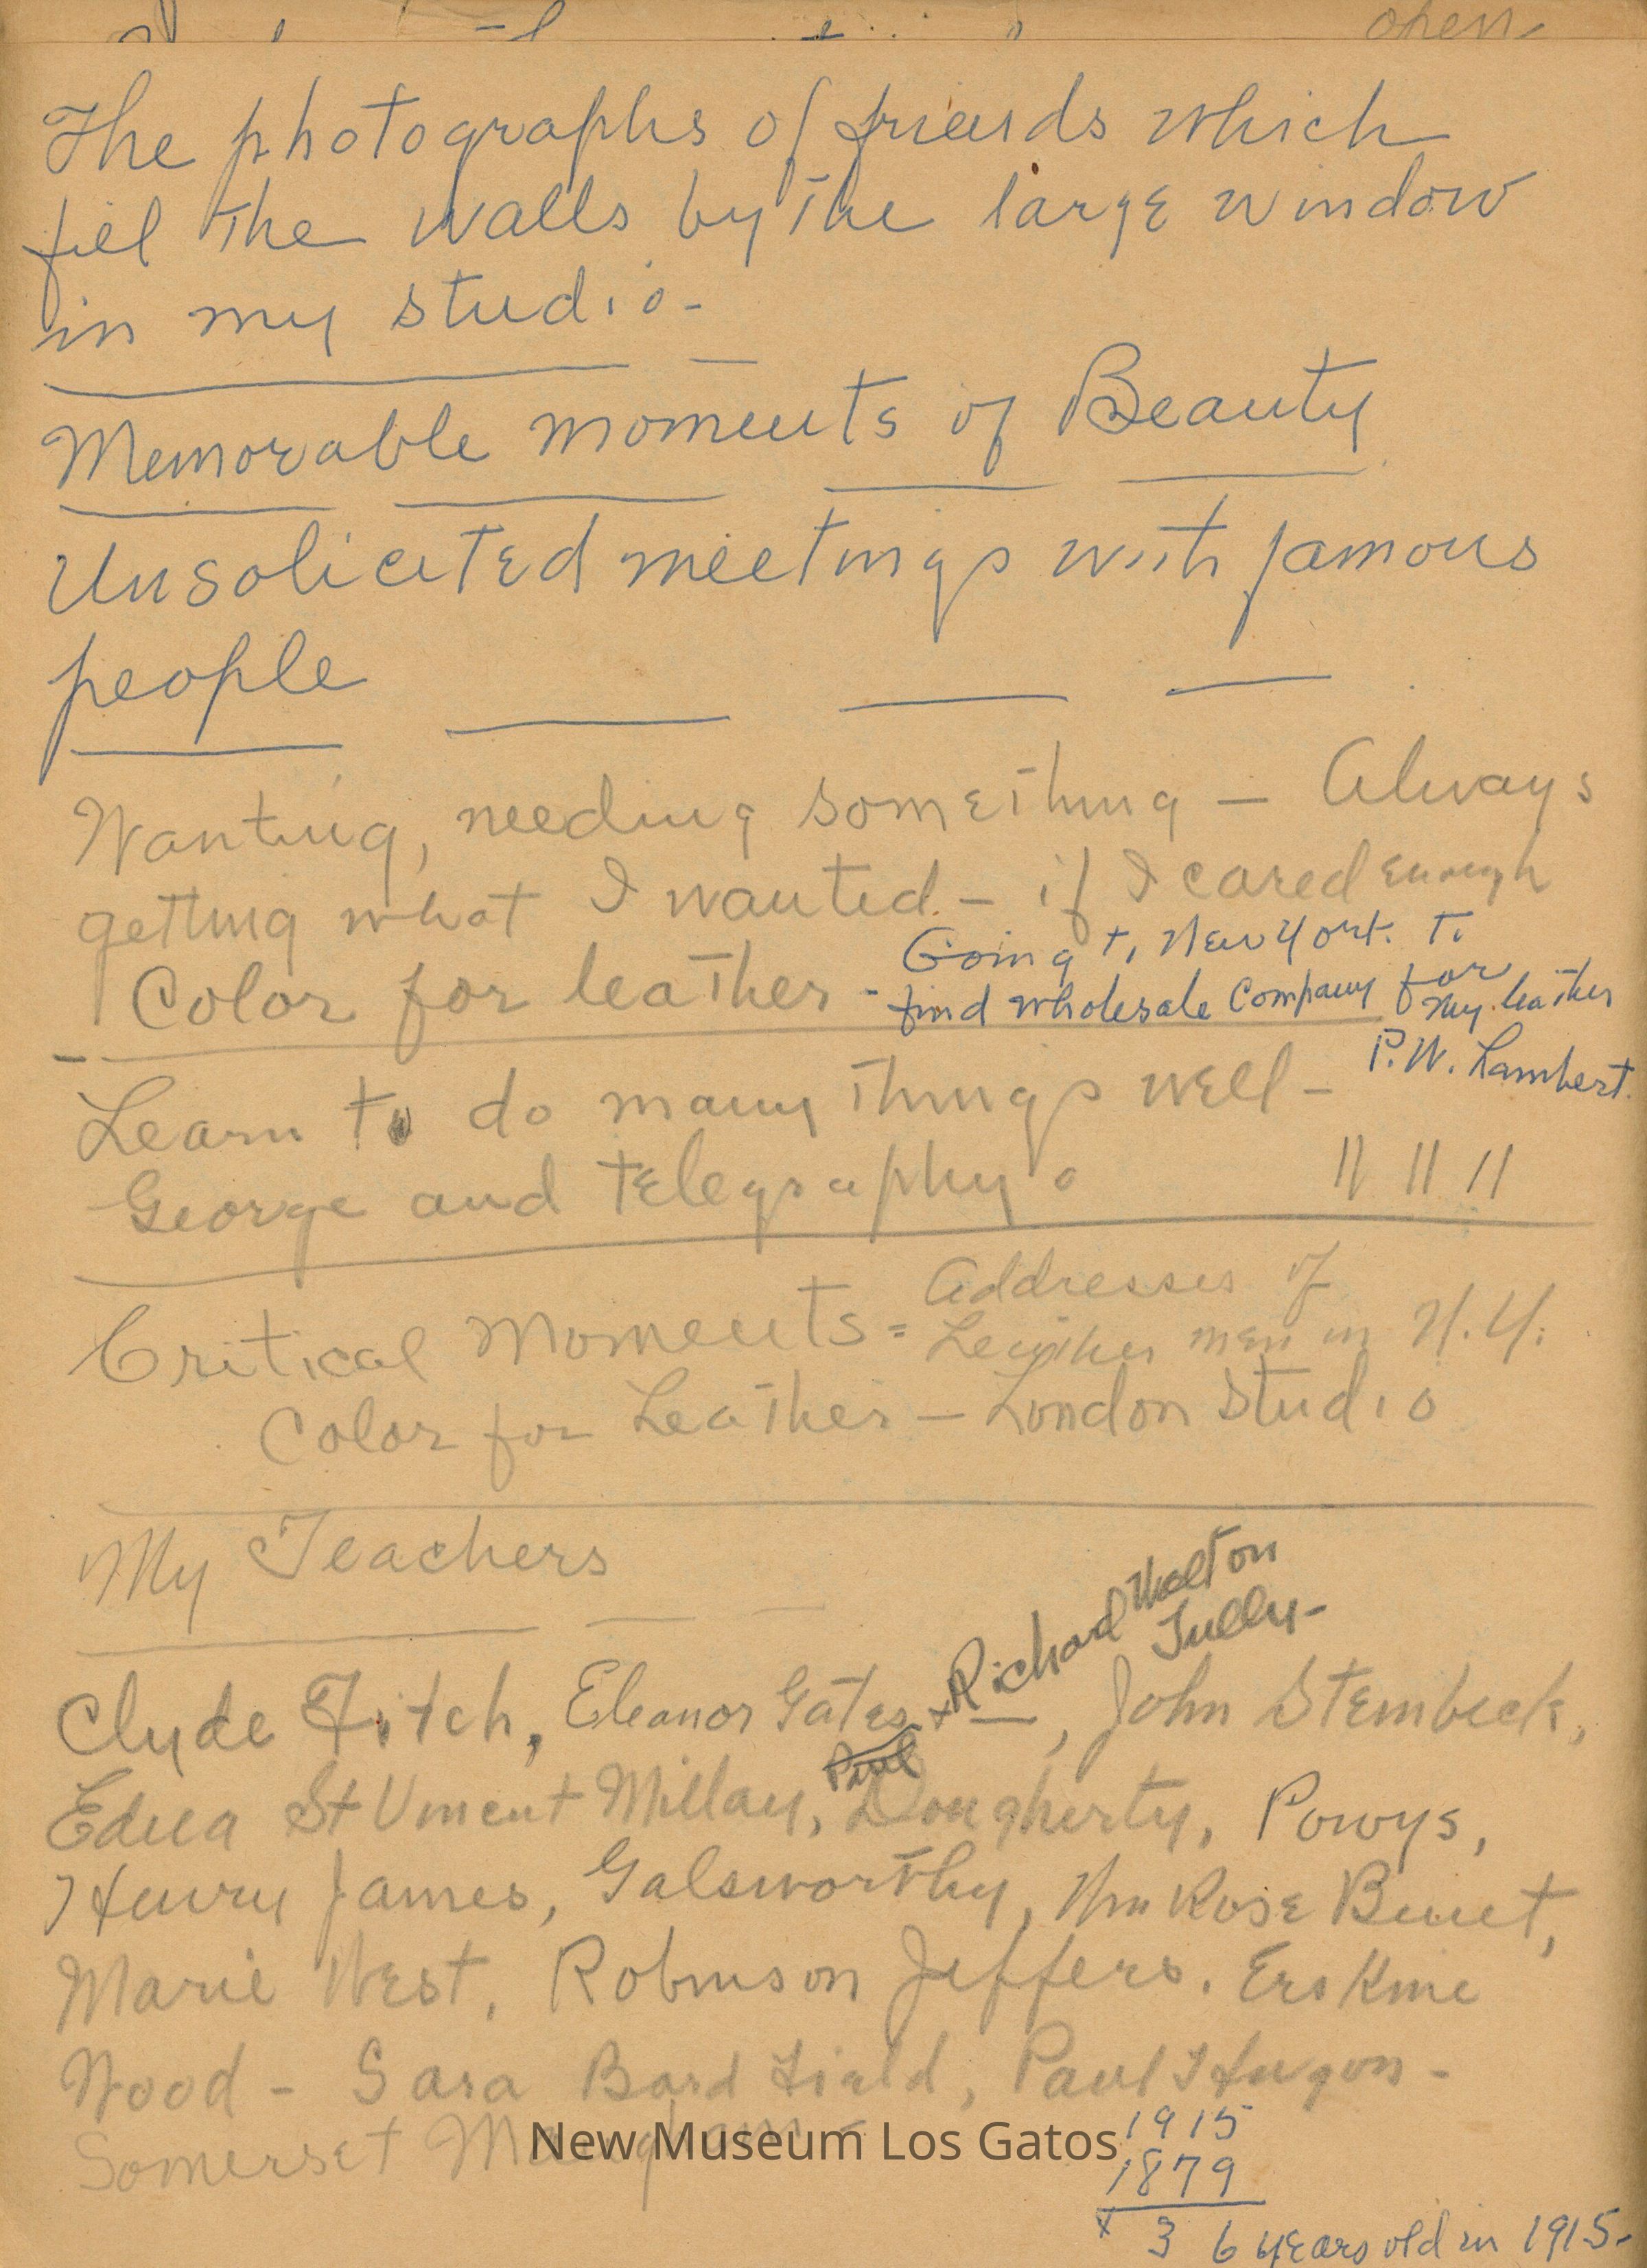 The photographs of friends which
fill the walls by the large window
in my studio-
Memorable moments of Beauty
Unsolicited meetings with famous
people
Wanting, needing something - Always
getting what I wanted - if I cared enough
Color for leather - Going to New York. to
find wholesale Company for
my leather
P.W. Lambert.
Learn to do many things well - " " "
George and telegraphy.
Critical Moments = Addresses of
Leather men in N.Y.
Color for Leather - London Studio
My Teachers
Clyde Fitch, Eleanor Gates x Richard Walton
Tully-
, John Steinbeck,
Paul
Edna St Vincent Millay, Dougherty, Powys,
Henry James, Galsworthy, Wm Rose Benet,
Marie West, Robinson Jeffers. Erskine
Wood - Sara Bard Field, Paul Hugon -
Somerset Maugham -
New Museum Los Gatos
1915
1879
x 3 6 years old in 1915-